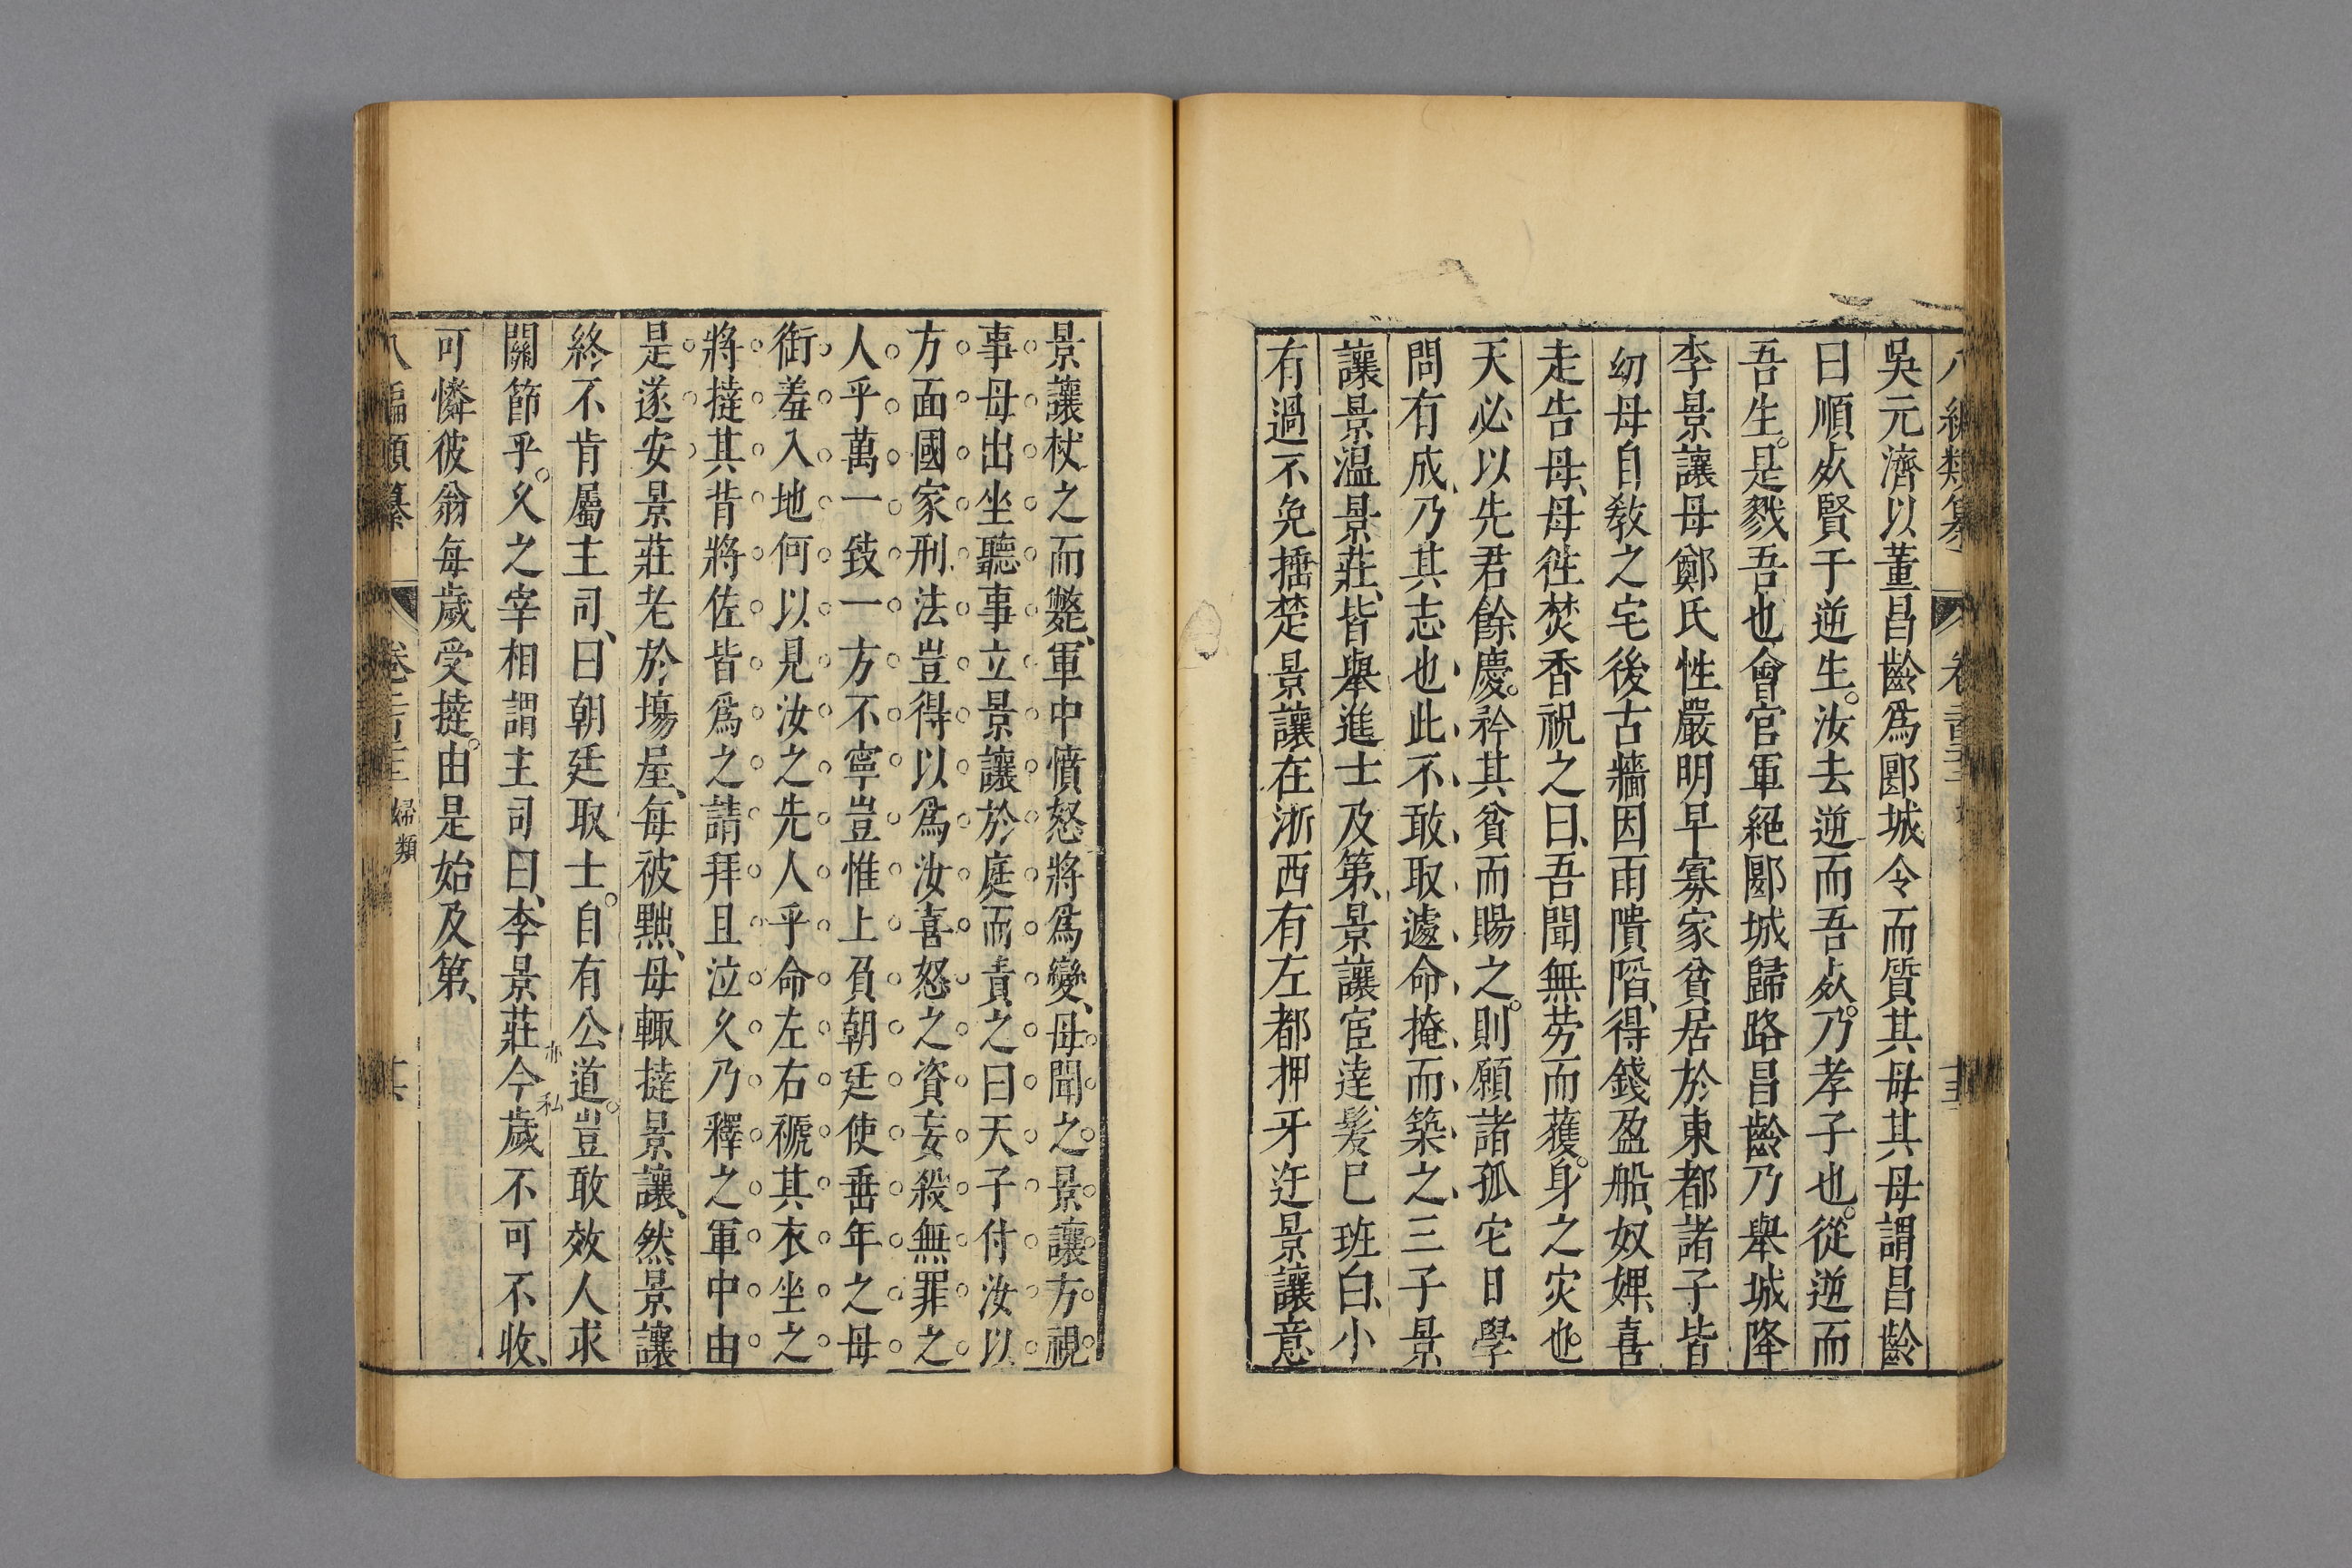 吳元濟以董昌齡爲郾城令而質其母其母謂昌齡
曰順死賢于逆生。汝去逆而吾死。乃孝子也。從逆而
吾生。是戮吾也會官軍絕郾城歸路昌齡乃舉城降
李景讓母鄭氏性嚴明早寡家貧居於東都諸子皆
幼母自敎之宅後古牆因雨隤䧟、得錢盈船、奴婢喜
走告母、母徃焚香祝之曰、吾聞無劳而獲。身之灾也。
天必以先君餘慶。矜其貧而賜之。則願諸孤它日學
問有成、乃其志也、此不敢取遽命掩而築之、三子景
讓景温景莊、皆舉進士及第、景讓宦達、髮巳班白、小
有過不免捶楚景讓在浙西有左都押牙迕景讓意
景讓杖之而斃、軍中憤怒將爲變、母聞之景讓方視
事母出坐聽事立景讓於庭而責之曰天子付汝以
方面國家刑法豈得以爲汝喜怒之資妄殺無罪之
人乎萬一致一方不寧豈惟上負朝廷使垂年之母
銜羞入地何以見汝之先人乎命左右褫其衣坐之
將撻其背將佐皆爲之請拜且泣久乃釋之軍中由
是遂安景莊老於塲屋、每被黜、母輒撻景讓、然景讓
終不肯屬主司、曰朝廷取士。自有公道。豈敢效人求
關節乎。久之宰相謂主司曰、李景莊今歲不可不收、
亦私
可憐彼翁每歲受撻。由是始及第、
婦類